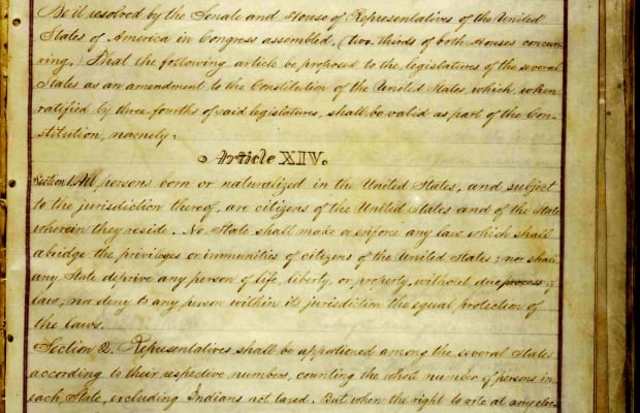 Be it resolved by the Senate and House of Representatives of the United
States of America in Congress assembled, (two thirds of both Houses concur-
ring,) That the following article be proposed to the legislatures of the several
States as an amendment to the Constitution of the United States, which, when
ratified by three fourths of said legislatures, shall be valid as part of the Con-
stitution, namely:
Article XIV.
Section 1. All persons born or naturalized in the United States, and subject
to the jurisdiction thereof, are citizens of the United States and of the State
wherein they reside. No State shall make or enforce any law which shall
abridge the privileges or immunities of citizens of the United States; nor shall
any State deprive any person of life, liberty, or property, without due process of
law; nor deny to any person within its jurisdiction the equal protection of
the laws.
Section 2. Representatives shall be apportioned among the several States
according to their respective numbers, counting the whole number of persons in
each State, excluding Indians not taxed. But when the right to vote at any elec-